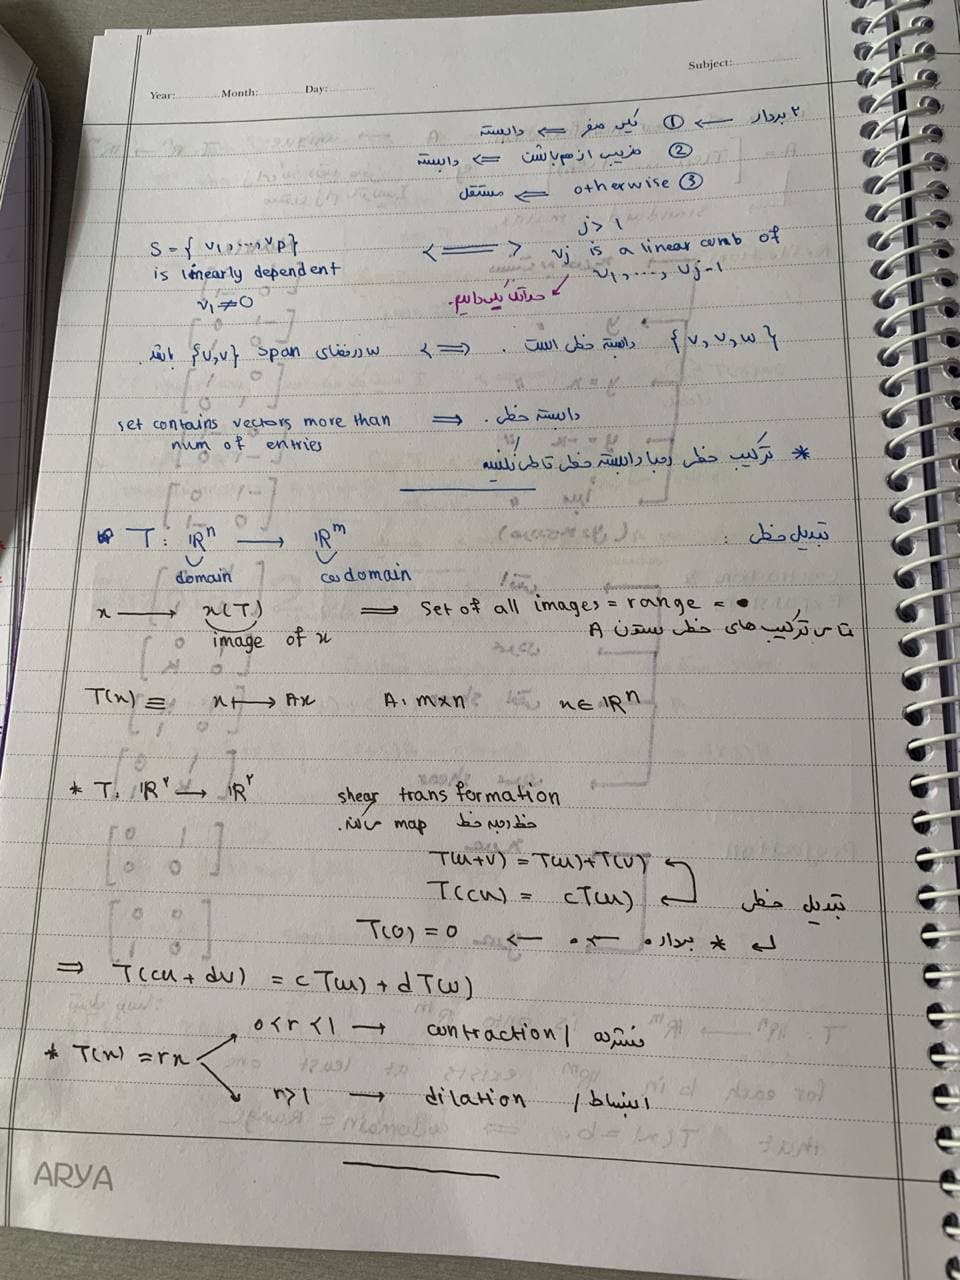 Year: Month: Day: Subject:
۲ بردار ← ① یکی صفر ⇐ وابسته
② ضریب از هم باشن ⇐ وابسته
③ otherwise ⇐ مستقل
S = { v₁, ..., vp } is linearly dependent v₁ ≠ 0 <==> j > 1 vj is a linear comb of v₁, ..., vj-1
حداقل یکی داریم.
{u, v, w} وابسته خطی است. <=> w در فضای span {u,v} باشد.
set contains vectors more than num of entries ⟹ وابسته خطی.
* ترکیب خطی رو با وابسته خطی قاطی نکنیم
تبدیل خطی:
T: ℝⁿ ⟶ ℝᵐ
domain codomain
x ⟶ x(T) ⟹ set of all images = range =
image of x
تمامی ترکیب های خطی ستون A
T(x) ≡ x ⟼ Ax A: m×n x ∈ ℝⁿ
* T: ℝ² ⟶ ℝ² shear transformation
خط رو به خط map می‌کند.
T(u+v) = T(u)+T(v)
T(cu) = cT(u) تبدیل خطی
T(0) = 0 ← بردار ۰ ← ۰ *
⟹ T(cu + dv) = cT(u) + dT(v)
* T(x) = rx
0<r<1 ⟶ contraction /
r>1 ⟶ dilation / انبساط
ARYA